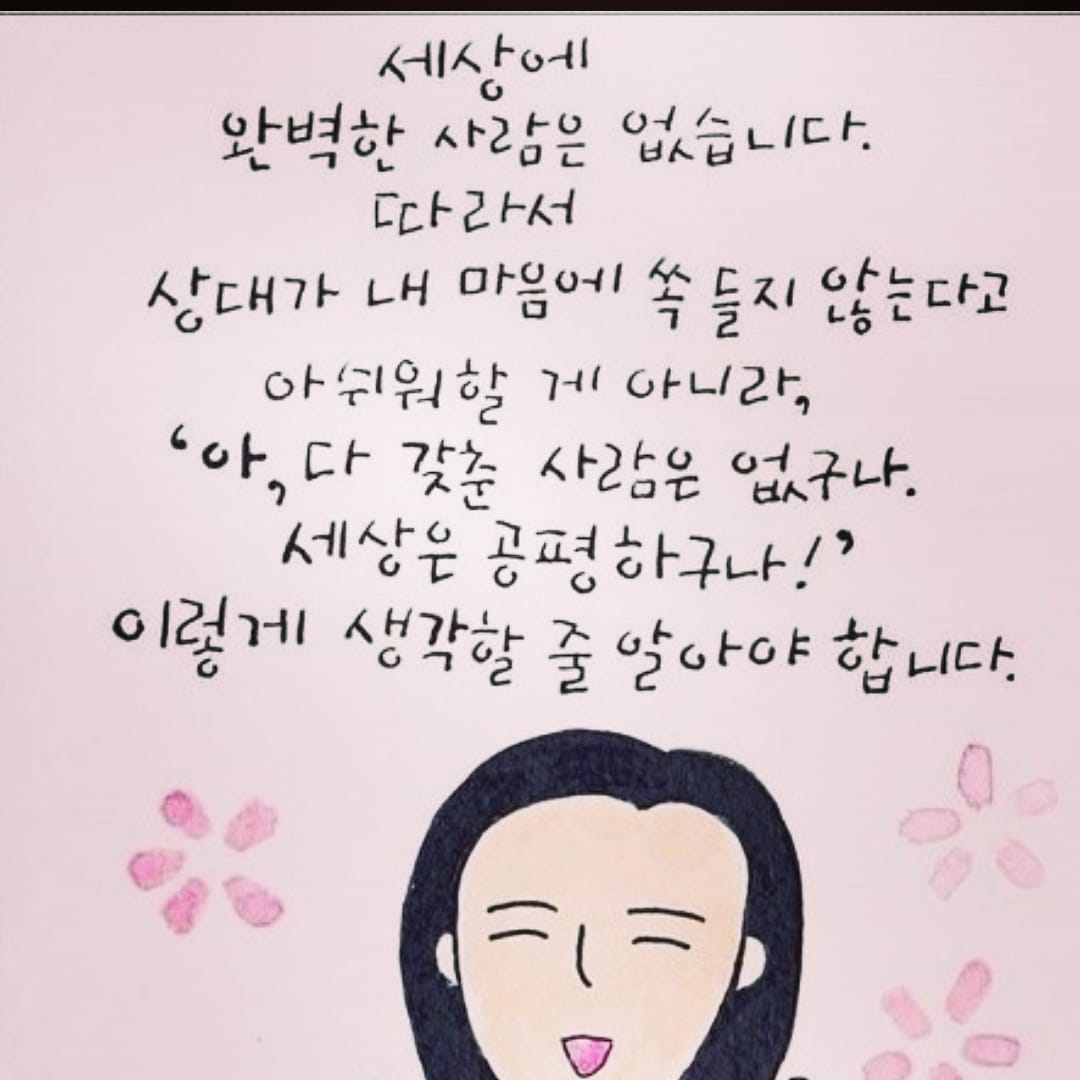 세상에
완벽한 사람은 없습니다.
따라서
상대가 내 마음에 쏙 들지 않는다고
아쉬워할 게 아니라,
‘아, 다 갖춘 사람은 없구나.
세상은 공평하구나!’
이렇게 생각할 줄 알아야 합니다.